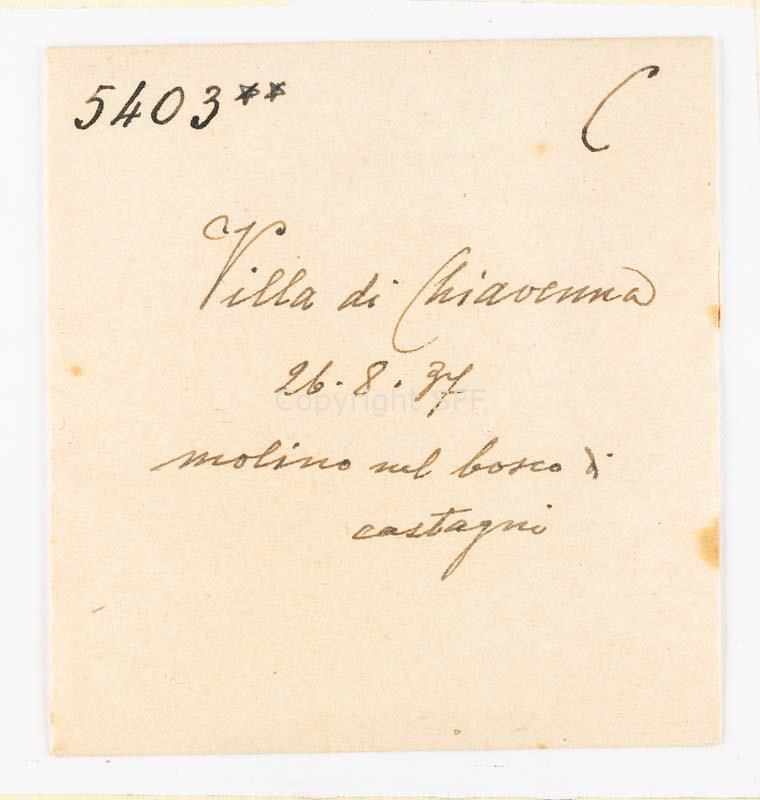 5403** C
Villa di Chiavenna
26.8.37
Copyright SFF.
molino nel bosco di
castagni